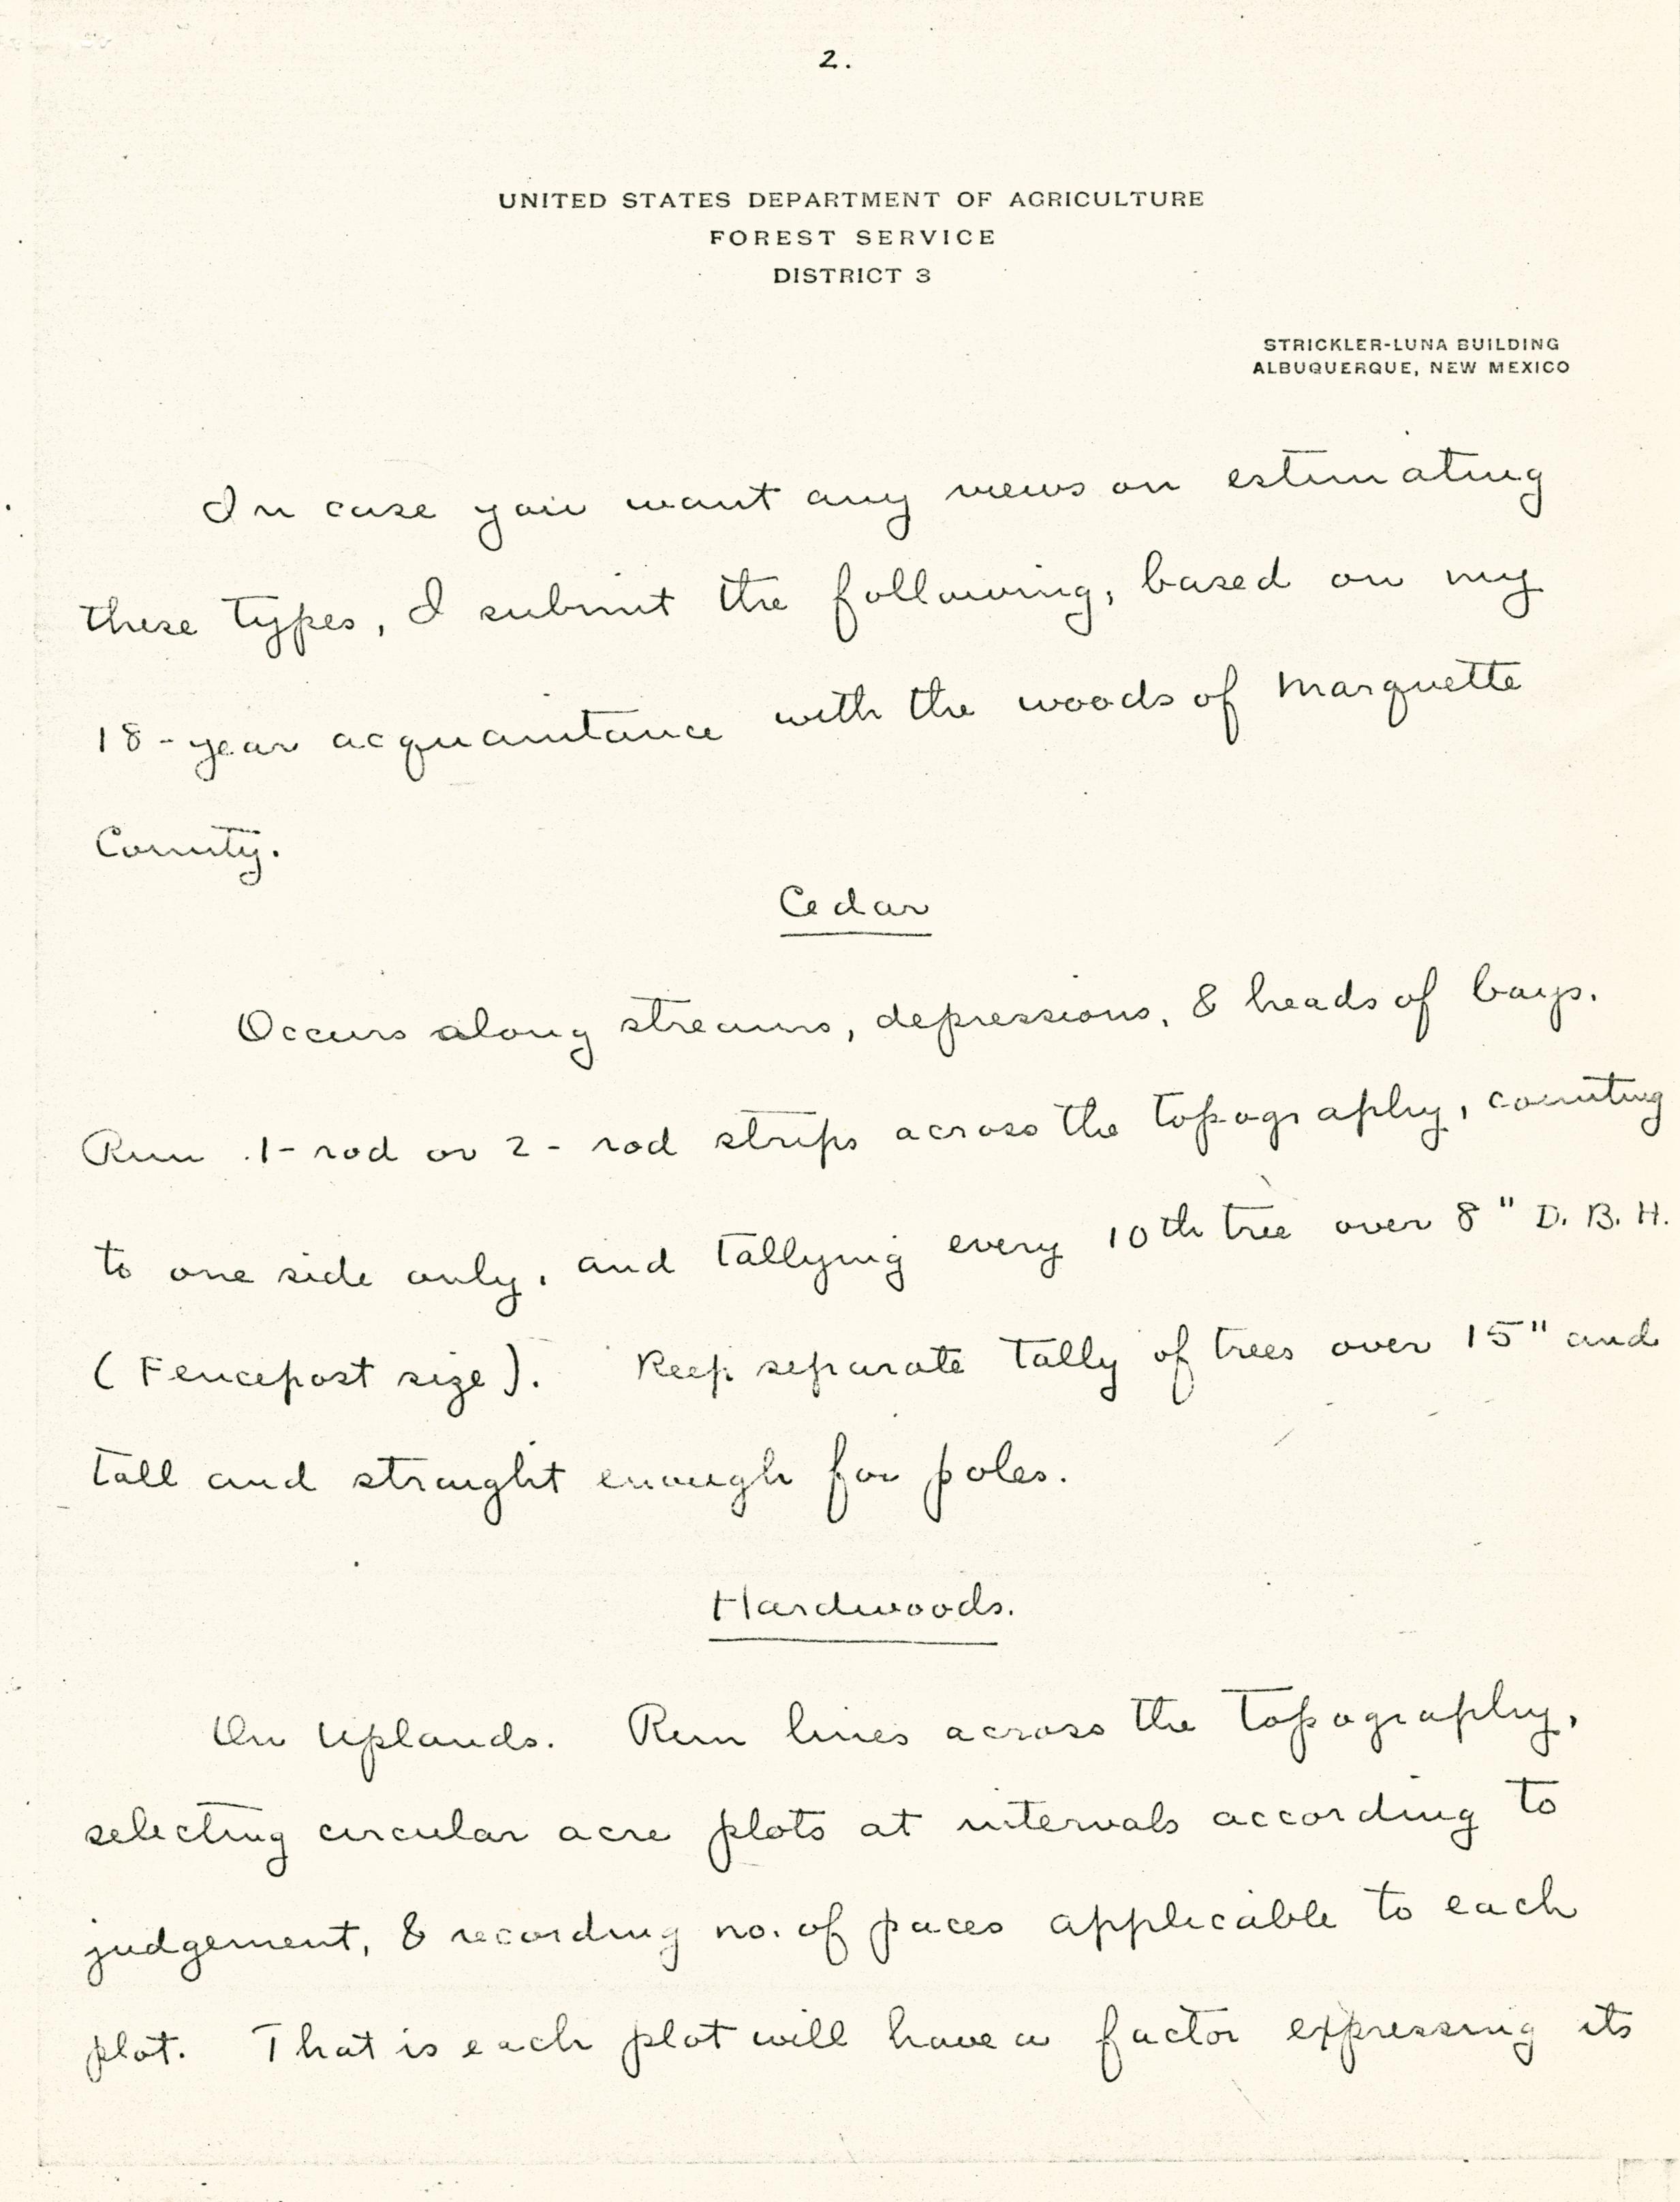 2.
UNITED STATES DEPARTMENT OF AGRICULTURE
FOREST SERVICE
DISTRICT 3
STRICKLER-LUNA BUILDING
ALBUQUERQUE, NEW MEXICO
In case you want any views on estimating
these types, I submit the following, based on my
18-year acquaintance with the woods of Marquette
County.
Cedar
Occurs along streams, depressions, & heads of bays.
Run 1-rod or 2-rod strips across the topography, counting
to one side only, and tallying every 10th tree over 8" D.B.H.
(Fencepost size). Keep separate tally of trees over 15" and
tall and straight enough for poles.
Hardwoods.
On Uplands. Run lines across the topography,
selecting circular acre plots at intervals according to
judgement, & recording no. of paces applicable to each
plot. That is each plot will have a factor expressing its